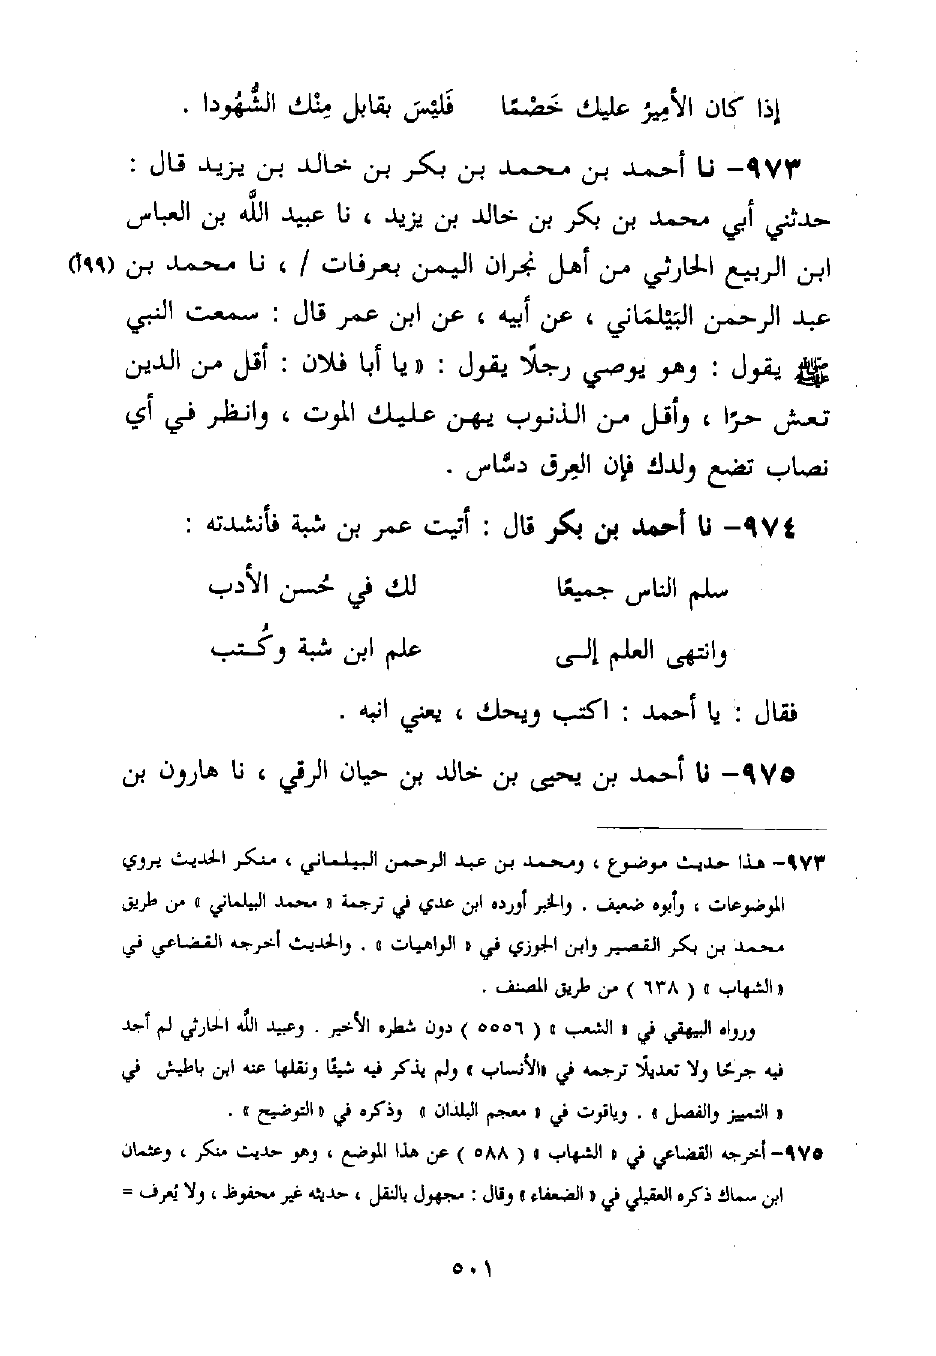 إذا كان الأميرُ عليك خَصْمًا فَلَيْسَ بقابل مِنْك الشُّهُودا .
٩٧٣- نا أحمد بن محمد بن بكر بن خالد بن يزيد قال :
حدثني أبي محمد بن بكر بن خالد بن يزيد ، نا عبيد الله بن العباس
ابن الربيع الحارثي من أهل نجران اليمن بعرفات / ، نا محمد بن (١٩٩أ)
عبد الرحمن البَيْلمَاني ، عن أبيه ، عن ابن عمر قال : سمعت النبي
ﷺ يقول : وهو يوصي رجلًا يقول : « يا أبا فلان : أقل من الدين
تعش حرًا ، وأقل من الذنوب يهن عليك الموت ، وانظر في أي
نصاب تضع ولدك فإن العِرق دسَّاس .
٩٧٤- نا أحمد بن بكر قال : أتيت عمر بن شبة فأنشدته :
سلم الناس جميعًا لك في حُسن الأدب
وانتهى العلم إلى علم ابن شبة وكُتب
فقال : يا أحمد : اكتب ويحك ، يعني انبه .
٩٧٥- نا أحمد بن يحيى بن خالد بن حيان الرقي ، نا هارون بن
٩٧٣- هذا حديث موضوع ، ومحمد بن عبد الرحمن البيلماني ، منكر الحديث يروي
الموضوعات ، وأبوه ضعيف . والخبر أورده ابن عدي في ترجمة « محمد البيلماني » من طريق
محمد بن بكر القصير وابن الجوزي في « الواهيات » . والحديث أخرجه القضاعي في
« الشهاب » ( ٦٣٨ ) من طريق المصنف .
ورواه البيهقي في « الشعب » ( ٥٥٥٦ ) دون شطره الأخير . وعبيد الله الحارثي لم أجد
فيه جرحًا ولا تعديلًا ترجمه في «الأنساب » ولم يذكر فيه شيئًا ونقلها عنه ابن باطيش في
« التمييز والفصل » . وياقوت في « معجم البلدان » وذكره في « التوضيح » .
٩٧٥- أخرجه القضاعي في « الشهاب » ( ٥٨٨ ) عن هذا الموضع ، وهو حديث منكر ، وعثمان
ابن سماك ذكره العقيلي في « الضعفاء » وقال : مجهول بالنقل ، حديثه غير محفوظ ، ولا يُعرف =
٥٠١